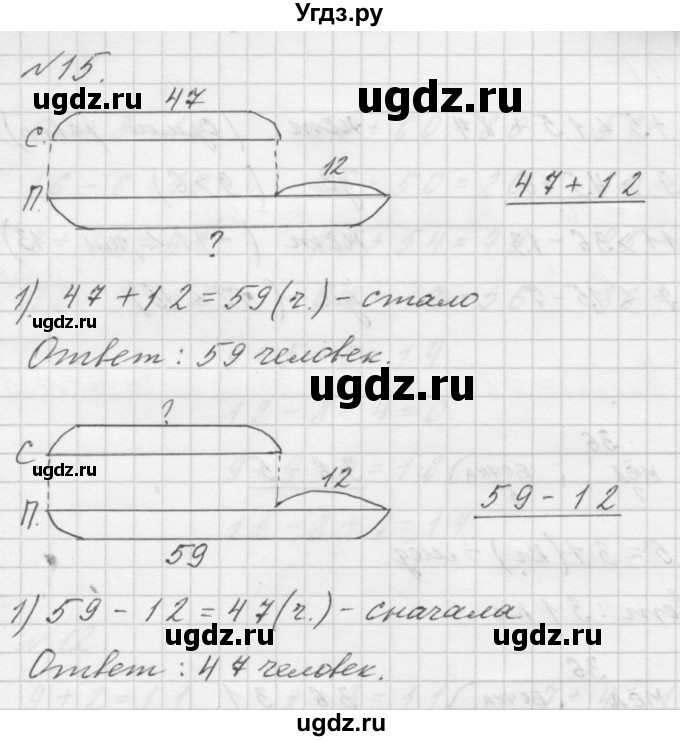 Угдз.ру
№15.
47
С.
12
П.
?
47+12
1) 47+12=59(ч.)-стало
Ответ: 59 человек.
?
С
12
П.
59
59-12
1) 59-12=47(ч.)-сначала
Ответ: 47 человек.
ugdz.ru
ugdz.ru
ugdz.ru
ugdz.ru
ugdz.ru
ugdz.ru
ugdz.ru
ugdz.ru
ugdz.ru
ugdz.ru
ugdz.ru